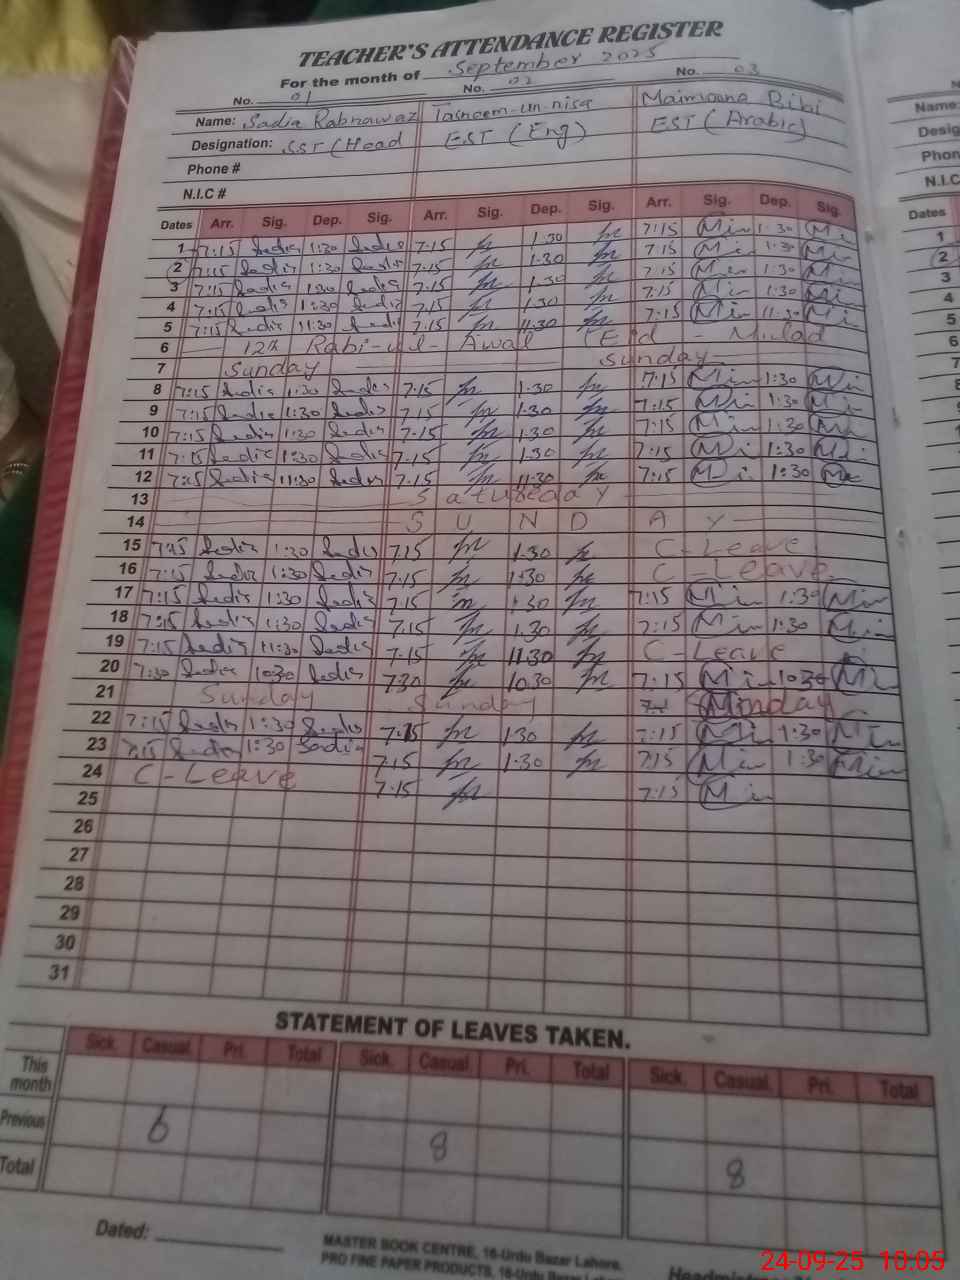 TEACHER'S ATTENDANCE REGISTER
For the month of September 2025
No. 01 No. 02 No. 03
Name: Sadia Rabnawaz Tasneem-un-nisa Maimoona Bibi
Designation: SST (Head EST (Eng) EST (Arabic)
Phone #
N.I.C #
Dates Arr. Sig. Dep. Sig. Arr. Sig. Dep. Sig. Arr. Sig. Dep. Sig.
1 7:15 Sadia 1:30 Sadia 7.15 1.30 7:15 1:30
2 7:15 Sadia 1:30 Sadia 7.15 1.30 7:15 1:30
3 7:15 Sadia 1:30 Sadia 7.15 1.30 7:15 1:30
4 7:15 Sadia 1:30 Sadia 7.15 1.30 7:15 1:30
5 7:15 Sadia 11:30 Sadia 7.15 11.30 7:15 11:30
6 12th Rabi-ul-Awal (Eid - Milad
7 Sunday Sunday
8 7:15 Sadia 1:30 Sadia 7.15 1.30 7:15 1:30
9 7:15 Sadia 1:30 Sadia 7.15 1.30 7:15 1:30
10 7:15 Sadia 1:30 Sadia 7.15 1.30 7:15 1:30
11 7:15 Sadia 1:30 Sadia 7.15 1.30 7:15 1:30
12 7:15 Sadia 11:30 Sadia 7.15 11.30 7:15 1:30
13 Saturday
14 S U N D A Y
15 7:15 Sadia 1:30 Sadia 7.15 1.30 C-Leave
16 7:15 Sadia 1:30 Sadia 7.15 1.30 C-Leave
17 7:15 Sadia 1:30 Sadia 7.15 1.30 7:15 1:30
18 7:15 Sadia 1:30 Sadia 7.15 1.30 7:15 1:30
19 7:15 Sadia 11:30 Sadia 7.15 11.30 C-Leave
20 7:30 Sadia 10:30 Sadia 7.30 10.30 7:15 10:30
21 Sunday Sunday
22 7:15 Sadia 1:30 Sadia 7.15 1.30 7:15 1:30
23 7:15 Sadia 1:30 Sadia 7.15 1.30 7:15 1:30
24 C-Leave 7.15 7:15
25
26
27
28
29
30
31
STATEMENT OF LEAVES TAKEN.
Sick. Casual. Pri. Total Sick. Casual. Pri. Total Sick. Casual. Pri. Total
This month
Previous 6 8 8
Total
Dated:
MASTER BOOK CENTRE, 16-Urdu Bazar Lahore.
PRO FINE PAPER PRODUCTS, 16-Urdu Bazar
24-09-25 10:05
Name:
Desig
Phon
N.I.C
Dates
1
2
3
4
5
6
7